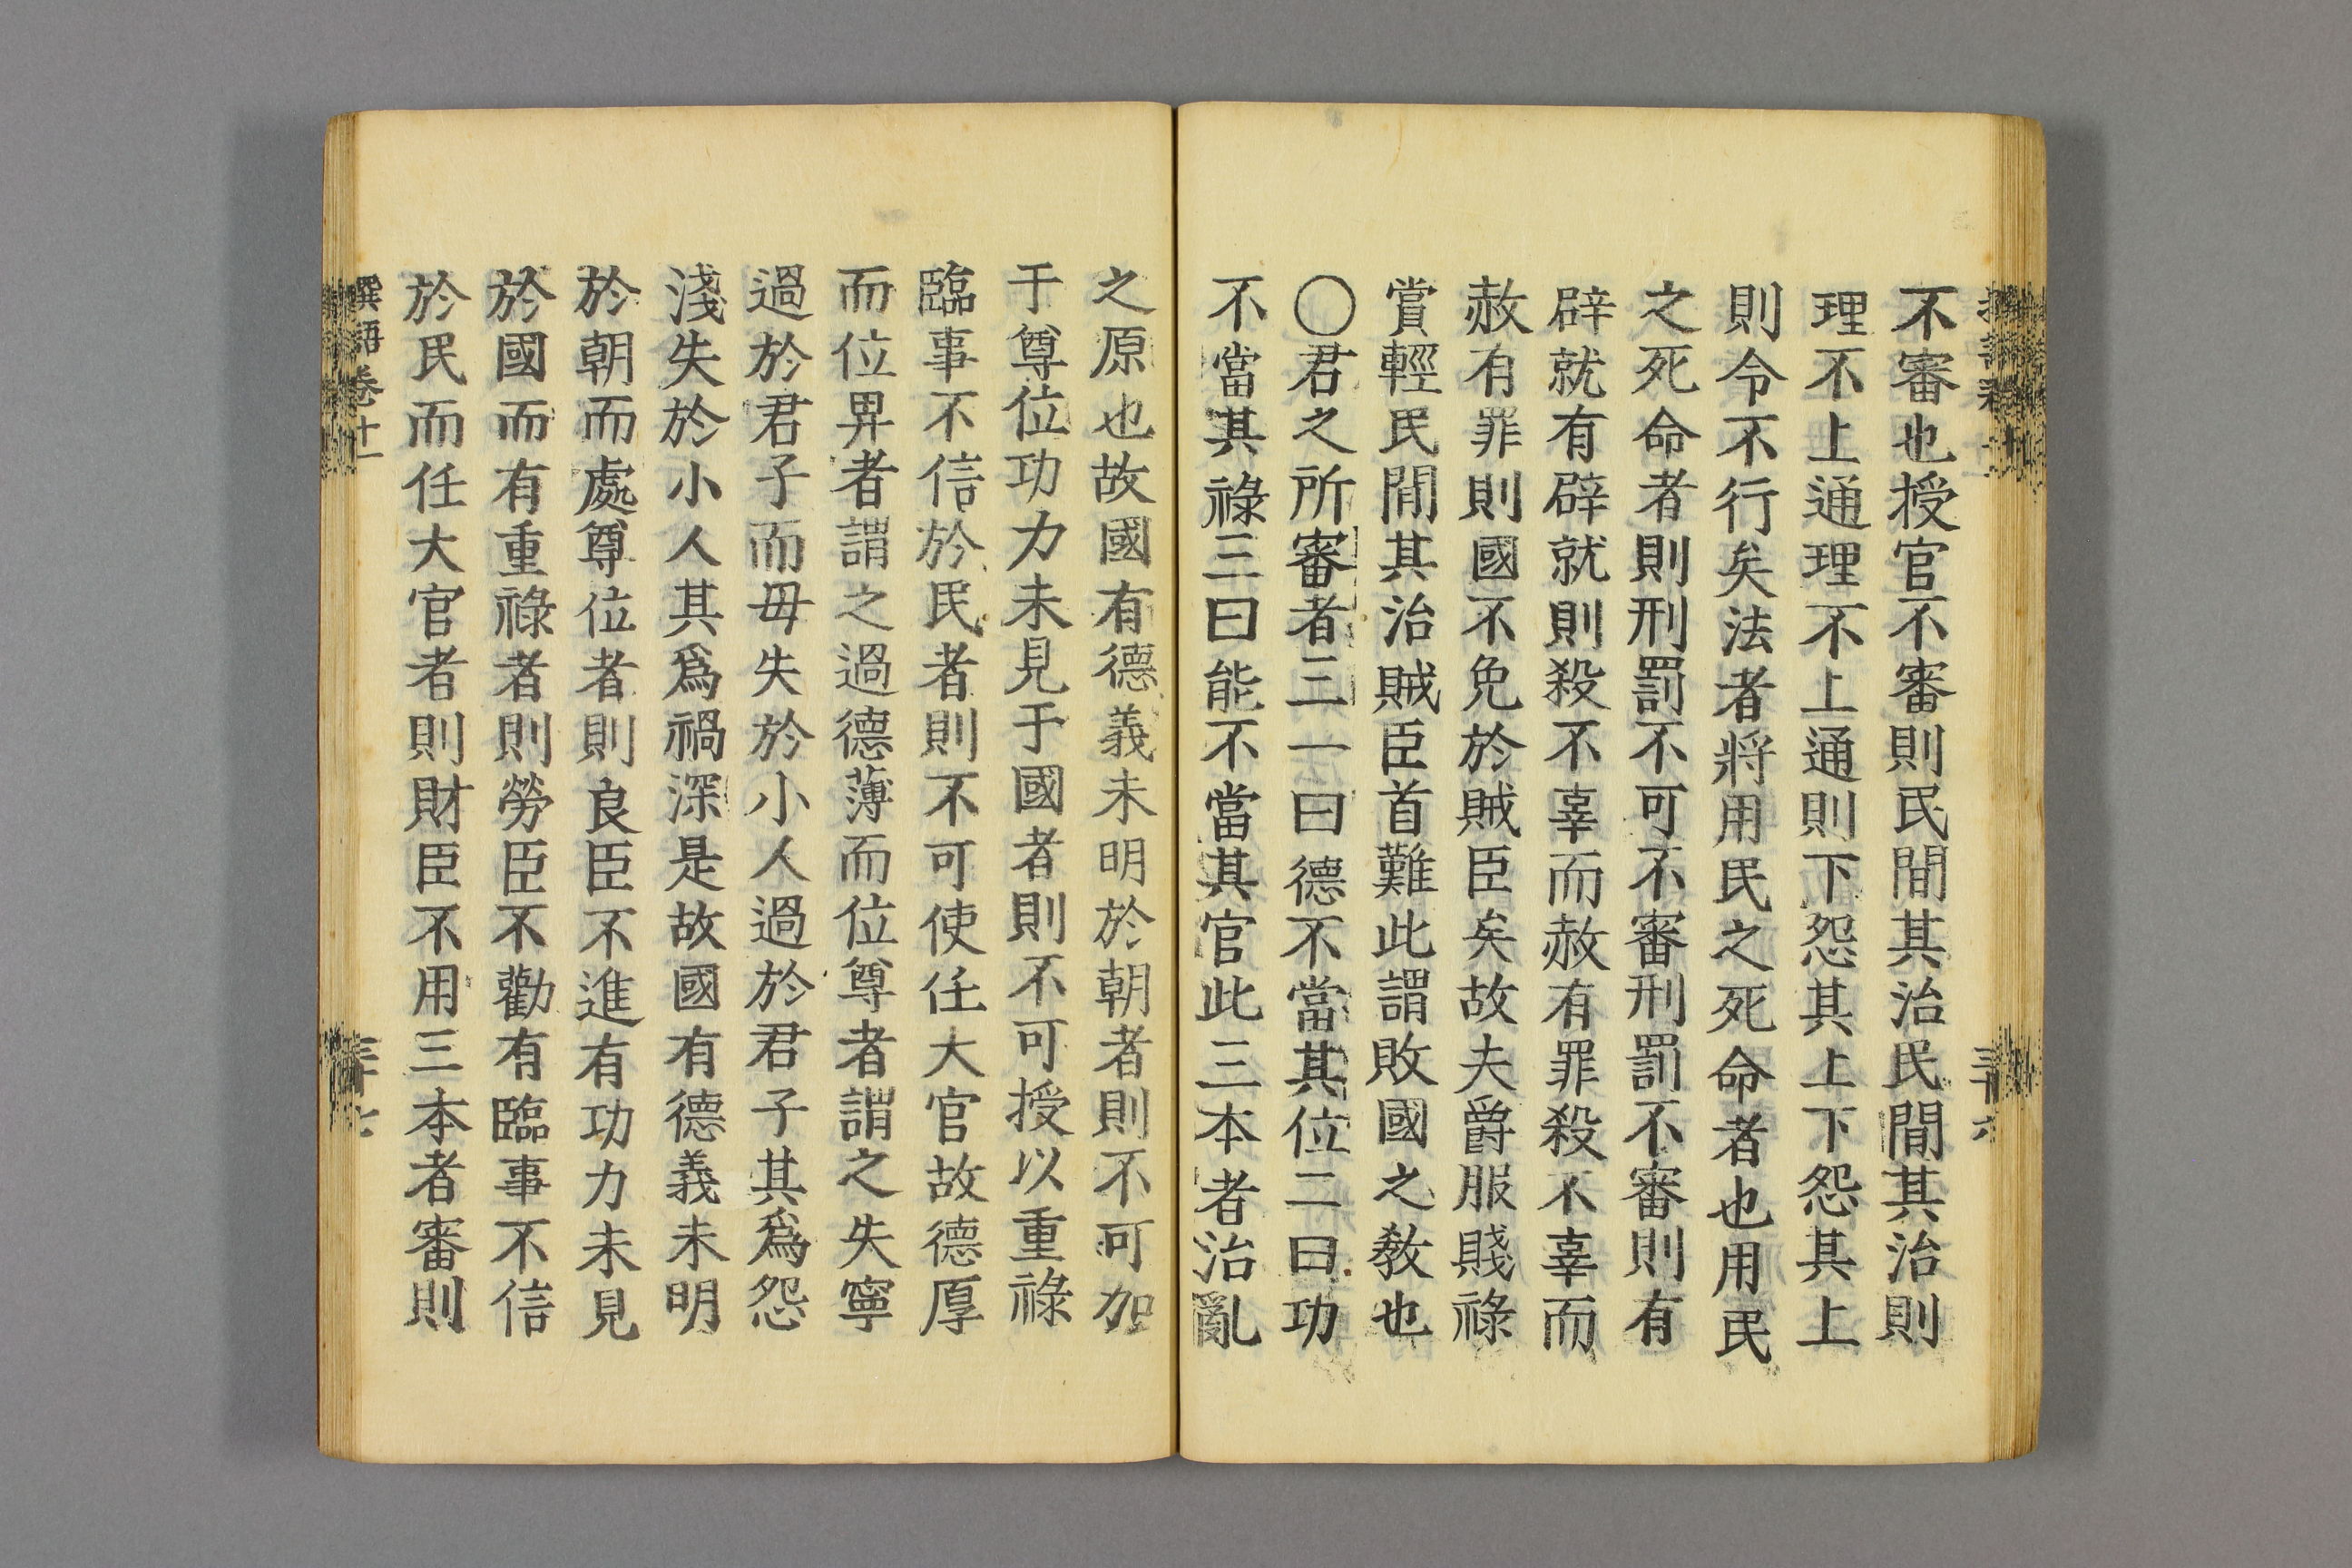 不審也授官不審則民間其治民間其治則
理不上通理不上通則下怨其上下怨其上
則令不行矣法者將用民之死命者也用民
之死命者則刑罰不可不審刑罰不審則有
辟就有辟就則殺不辜而赦有罪殺不辜而
赦有罪則國不免於賊臣矣故夫爵服賤祿
賞輕民間其治賊臣首難此謂敗國之教也
〇君之所審者三一曰德不當其位二曰功
不當其祿三曰能不當其官此三本者治亂
之原也故國有德義未明於朝者則不可加
于尊位功力未見于國者則不可授以重祿
臨事不信於民者則不可使任大官故德厚
而位畀者謂之過德薄而位尊者謂之失寧
過於君子而毋失於小人過於君子其為怨
淺失於小人其為禍深是故國有德義未明
於朝而處尊位者則良臣不進有功力未見
於國而有重祿者則勞臣不勸有臨事不信
於民而任大官者則財臣不用三本者審則
撰語卷十一
三十七